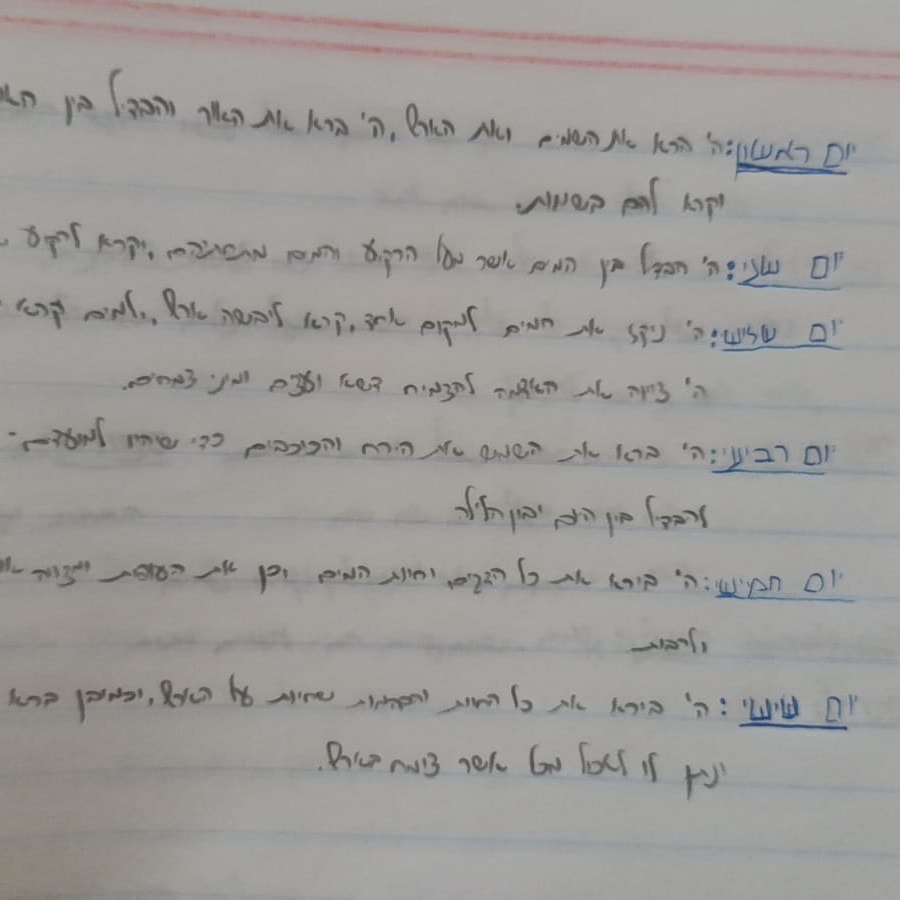 יום ראשון: ה' ברא את השמים ואת הארץ, ה' ברא את האור והבדיל בין
וקרא להם בשמות.
יום שני: ה' הבדל בין המים אשר מעל הרקיע והמים מתחתיהם, וקרא לרקיע
יום שלישי: ה' ניקז את המים למקום אחד, קרא ליבשה ארץ, ולמים קרא
ה' ציווה את האדמה להצמיח דשא ועצים ומיני צמחים.
יום רביעי: ה' ברא את השמש את הירח והכוכבים כדי שיהיו למועדים
להבדיל בין היום ובין הלילה
יום חמישי: ה' בירא את כל הדגים וחיות המים וכן את העופות
ולרבות
יום שישי: ה' בירא את כל החיות והבהמות שחיות על הארץ, וכמובן ברא
ונתן לו לאכול מכל אשר צימח בארץ.